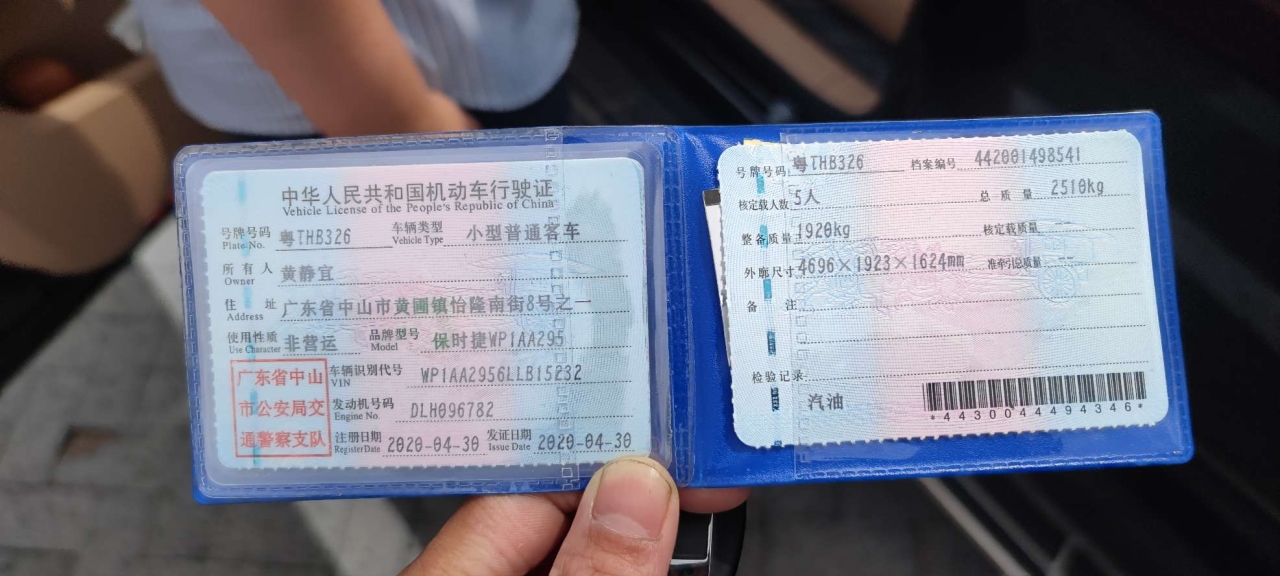 中华人民共和国机动车行驶证
Vehicle License of the People's Republic of China
号牌号码 粤THB326 车辆类型 小型普通客车
Plate No. Vehicle Type
所有人 黄静宜
Owner
住址 广东省中山市黄圃镇怡隆南街8号之一
Address
使用性质 非营运 品牌型号 保时捷WP1AA295
Use Character Model
广东省中山
市公安局交
通警察支队
车辆识别代号 WP1AA2956LLB15232
VIN
发动机号码 DLH096782
Engine No.
注册日期 2020-04-30 发证日期 2020-04-30
Register Date Issue Date
号牌号码 粤THB326 档案编号 442001498541
核定载人数 5人 总质量 2510kg
整备质量 1920kg 核定载质量
外廓尺寸 4696×1923×1624mm 准牵引总质量 --
备注
检验记录
汽油
*4430044494346*